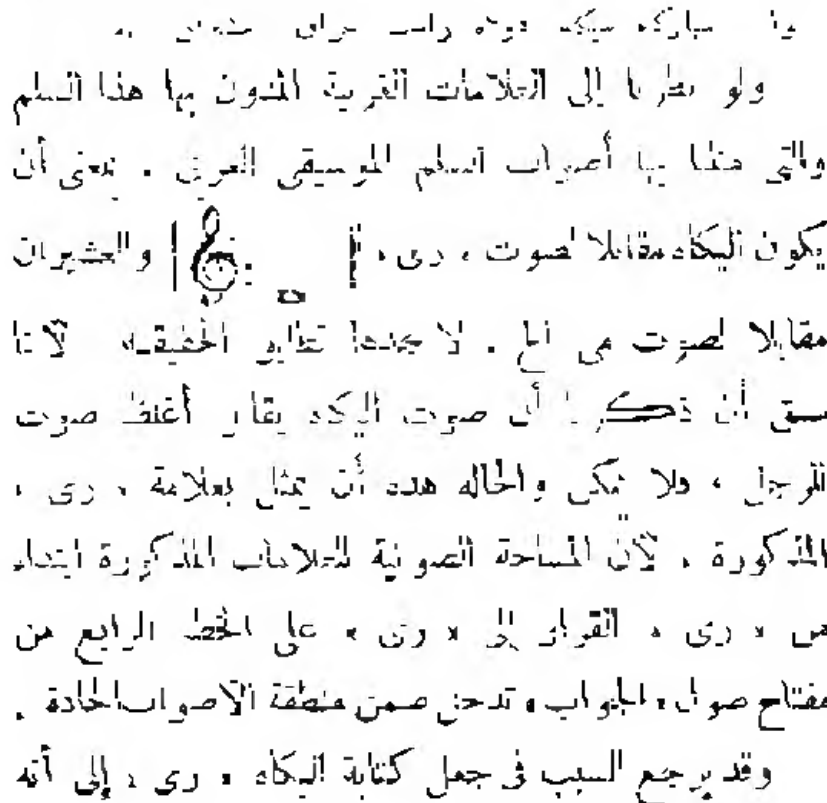 ولو نظرنا إلى العلامات الغربية المدون بها هذا السلم
والتي مثلنا بها أصوات السلم الموسيقى العربى . بمعنى أن
يكون اليكاه مقابلا لصوت « رى » والعشيران
مقابلا لصوت مى الخ . لا نجدها تطابق الحقيقة لأننا
سبق أن ذكرنا أن صوت اليكاه يقابل أغلظ صوت
للرجل ، فلا يمكن والحالة هذه أن يمثل بعلامة « رى »
المذكورة . لأن المساحة الصوتية للعلامات المذكورة ابتداء
من « رى » القرار إلى « رى » على الخط الرابع من
مفتاح صول « الجواب » تدخل ضمن منطقة الأصوات الحادة .
وقد يرجع السبب فى جعل كتابة اليكاه « رى » إلى أنه